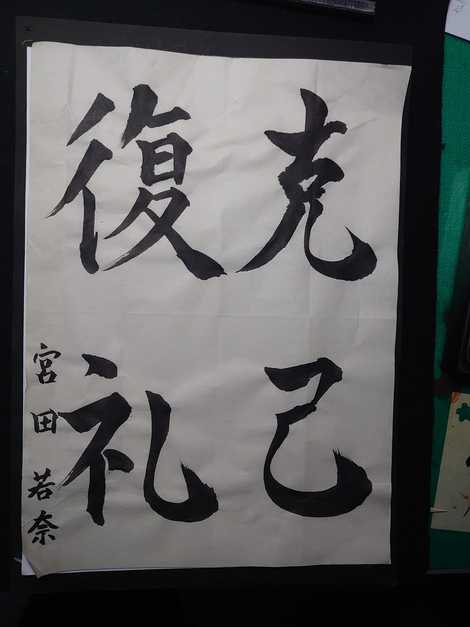 克己
復礼
宮田若奈